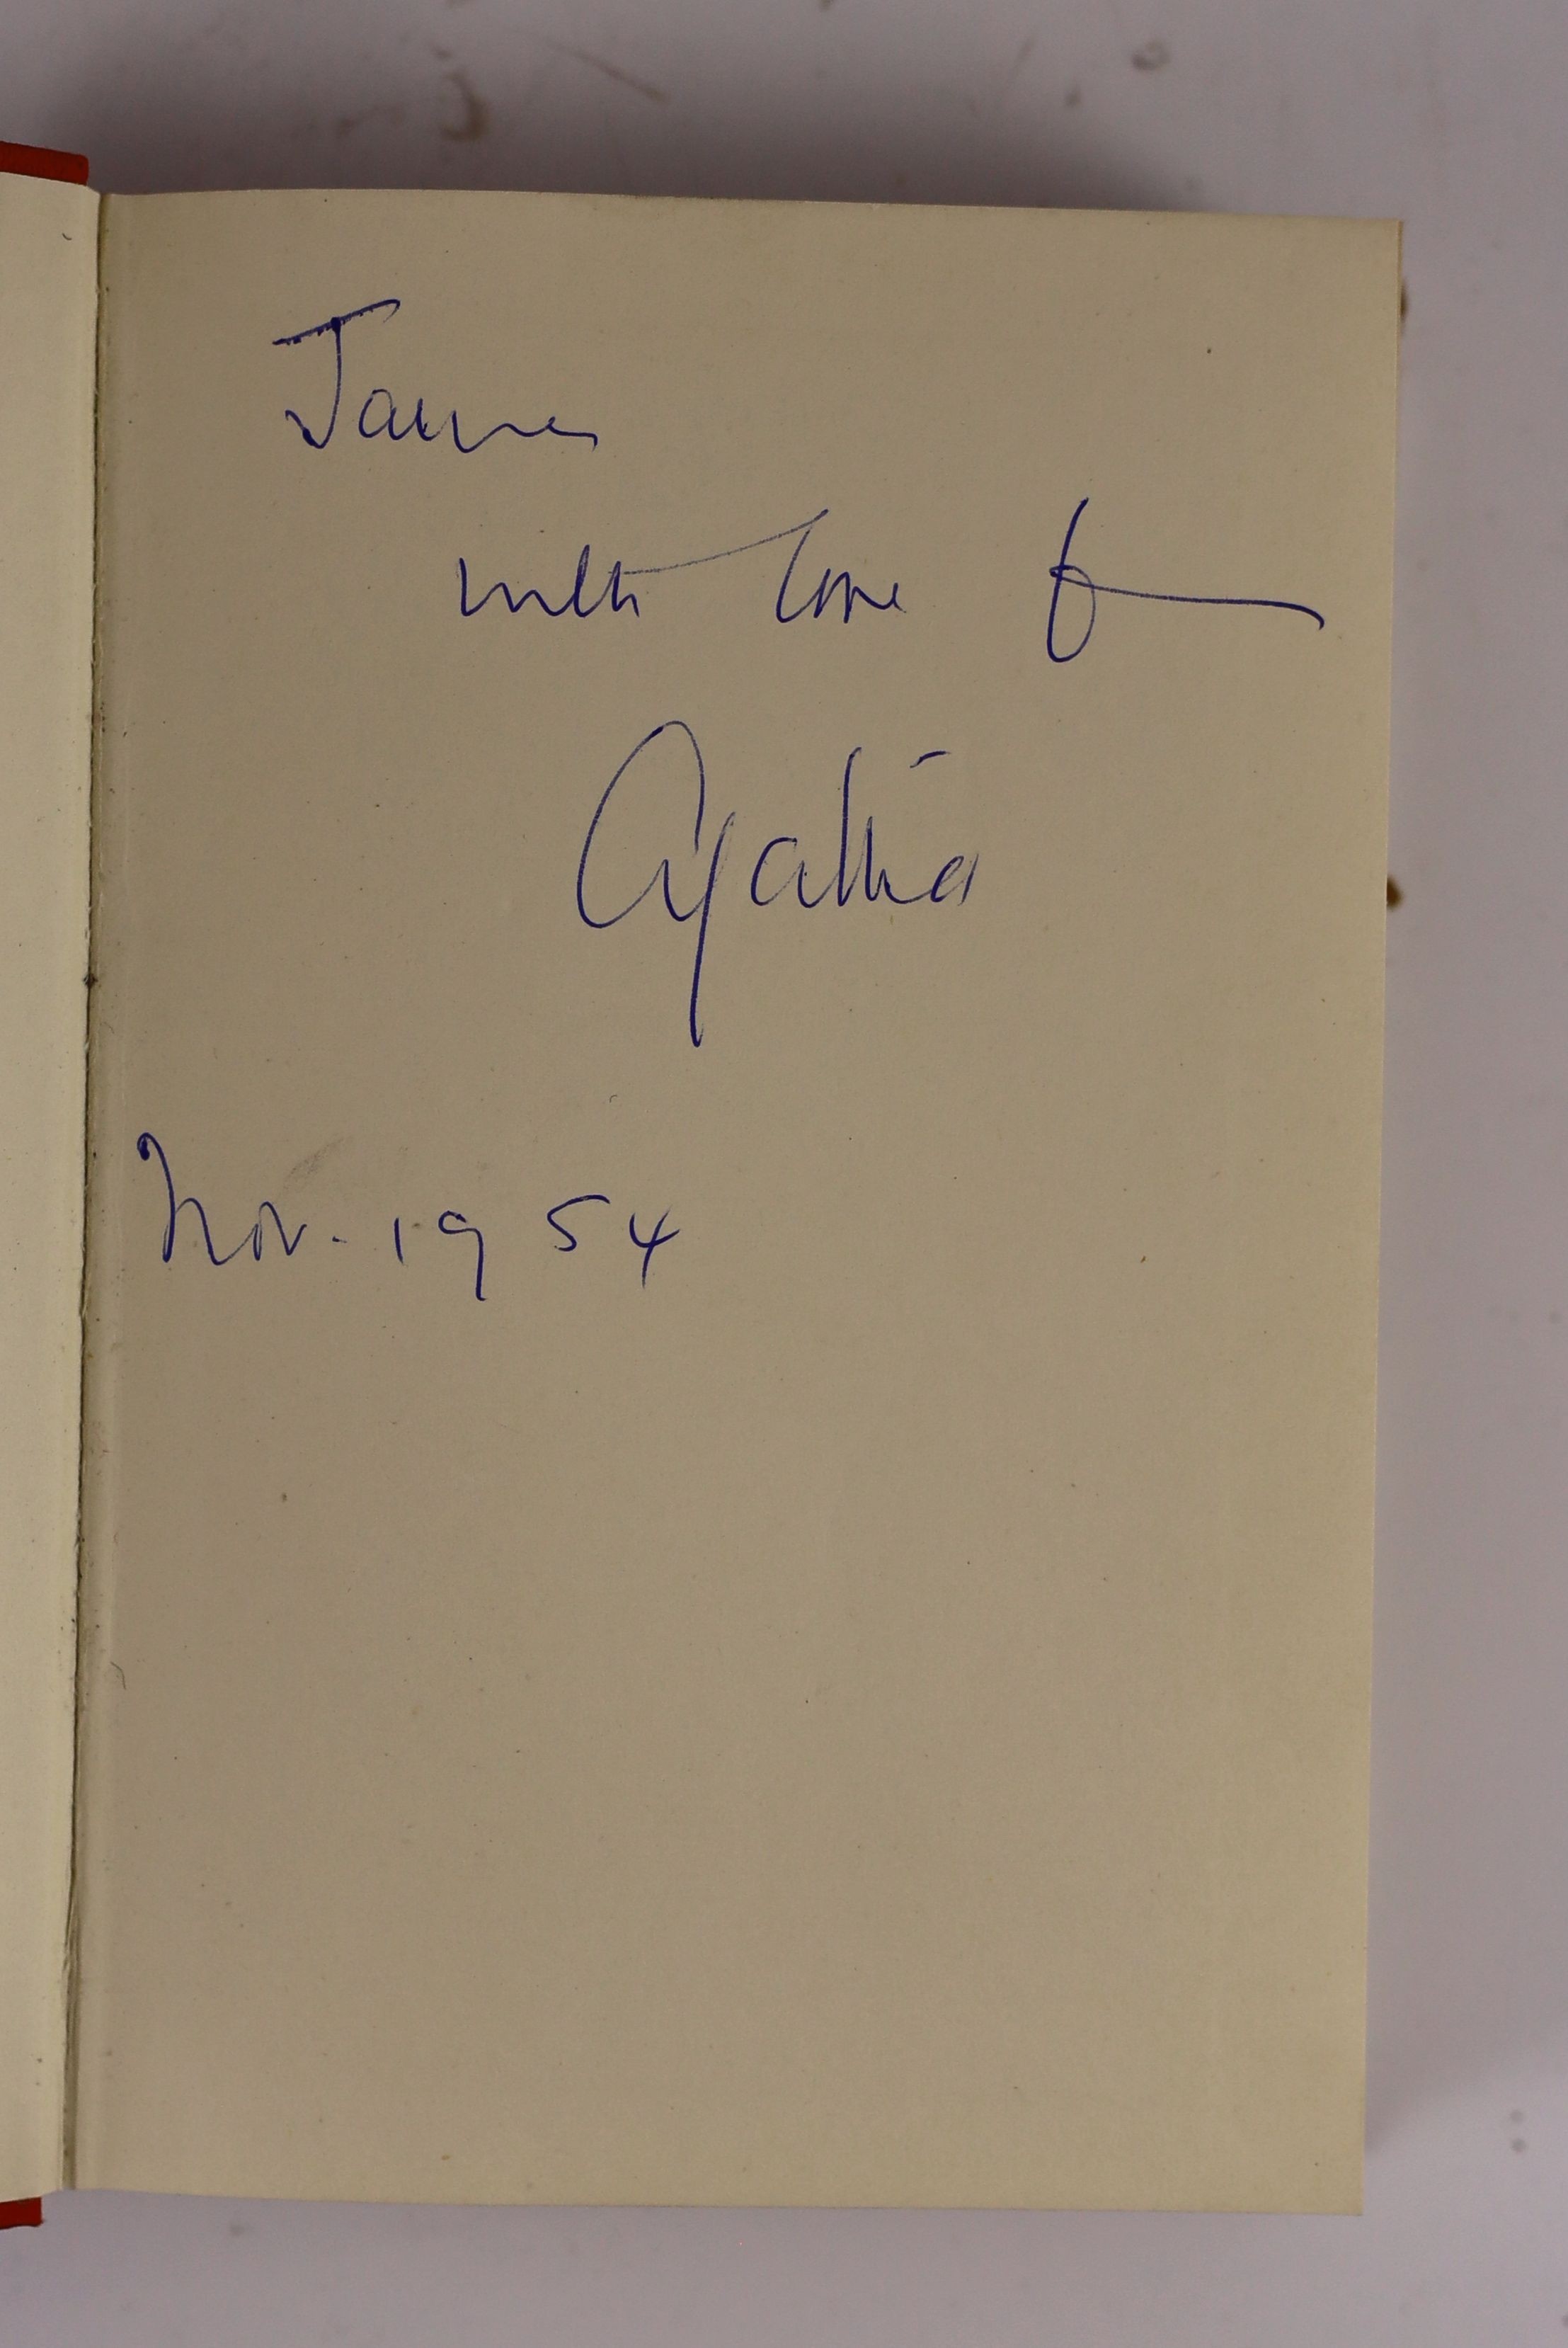 James
with love from
Agatha
Nov. 1954